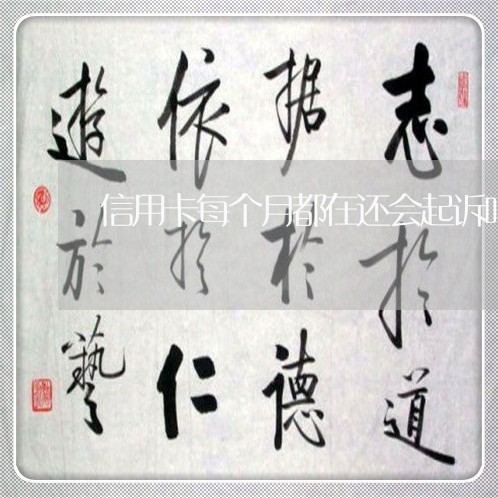 志於道
据於德
依於仁
遊於藝
信用卡每个月都在还会起诉